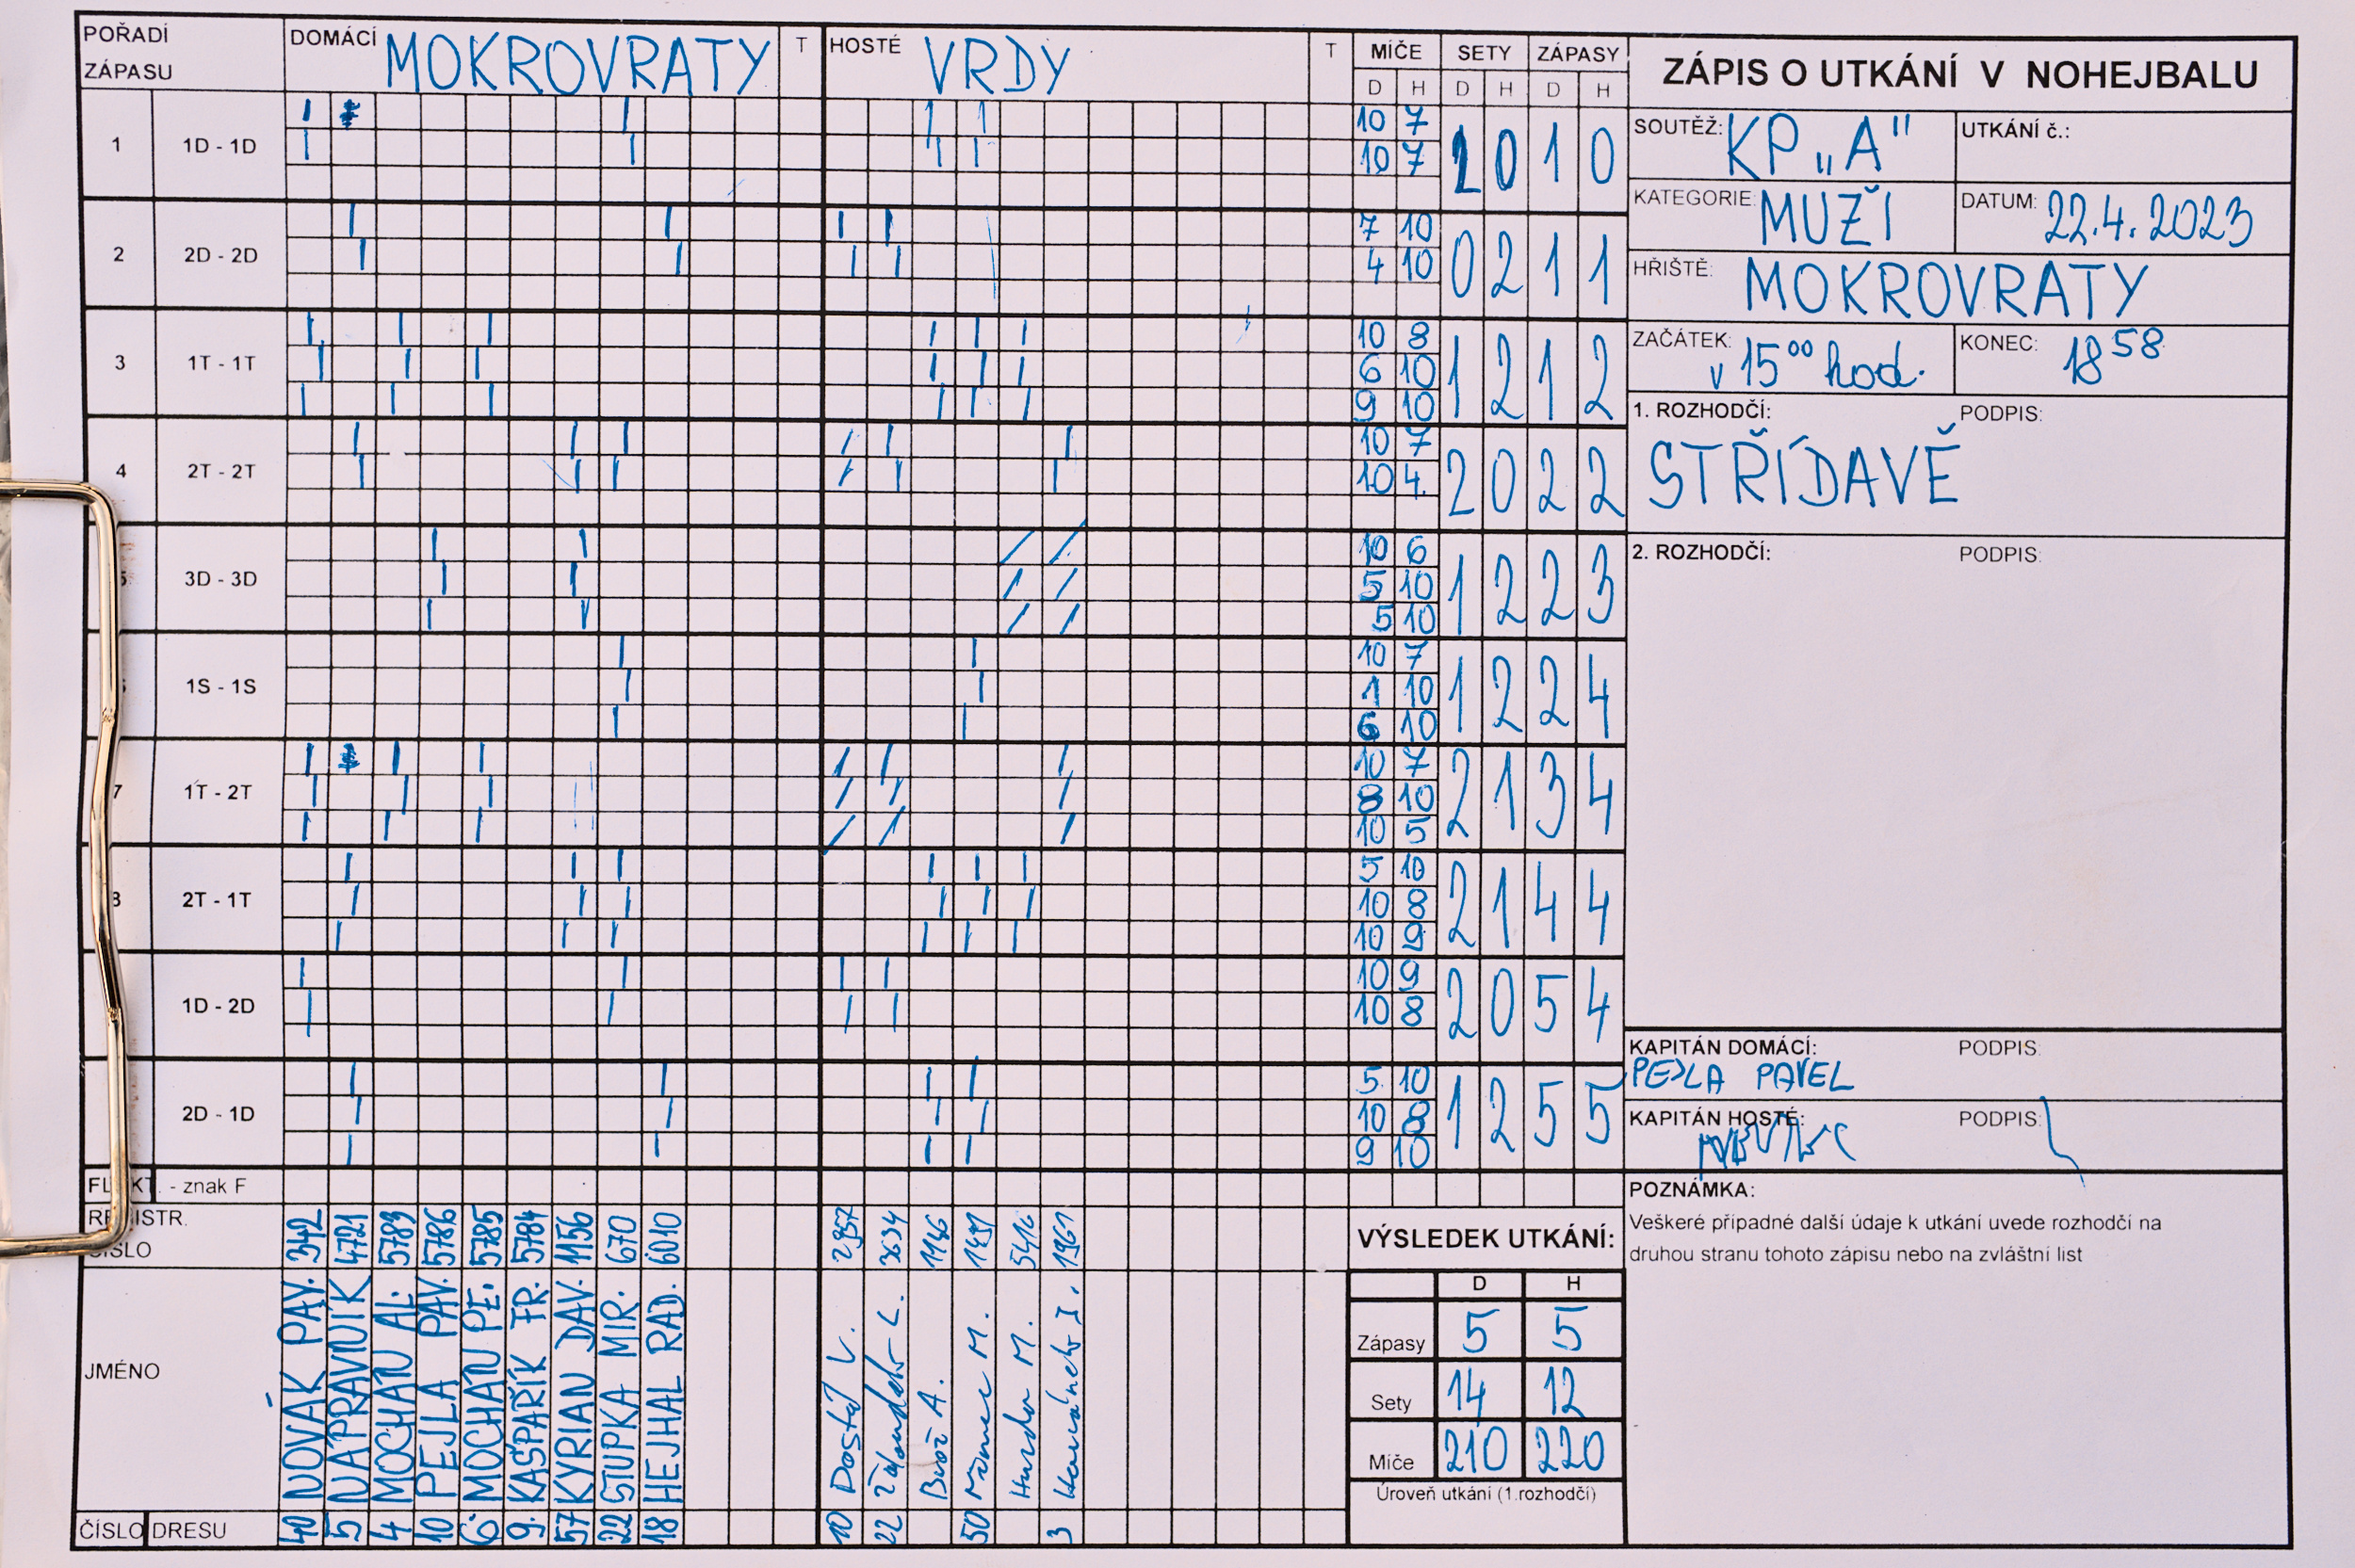 POŘADÍ ZÁPASU
DOMÁCÍ MOKROVRATY T
HOSTÉ VRDY T
MÍČE SETY ZÁPASY
D H D H D H
1 1D - 1D
10 7
10 7
1 0 1 0
2 2D - 2D
7 10
4 10
0 2 1 1
3 1T - 1T
10 8
6 10
9 10
1 2 1 2
4 2T - 2T
10 7
10 4
2 0 2 2
3D - 3D
10 6
5 10
5 10
1 2 2 3
1S - 1S
10 7
1 10
6 10
1 2 2 4
7 1T - 2T
10 7
8 10
10 5
2 1 3 4
2T - 1T
5 10
10 8
10 9
2 1 4 4
1D - 2D
10 9
10 8
2 0 5 4
2D - 1D
5 10
10 8
9 10
1 2 5 5
- znak F
REGISTR. ČÍSLO
342 4721 5789 5786 5785 5784 1156 670 6010
2957 3634 1146 1491 5416 1961
JMÉNO
NOVÁK PAV.
NÁPRAVNÍK
MOCHAN AL.
PEJLA PAV.
MOCHAN PE.
KAŠPAŘÍK FR.
KYRIAN DAV.
STUPKA MIR.
HEJHAL RAD.
Dostál V.
L.
A.
M.
M.
ČÍSLO DRESU
40 5 4 10 6 9 57 22 18
10 22 50 3
ZÁPIS O UTKÁNÍ V NOHEJBALU
SOUTĚŽ: KP „A"
UTKÁNÍ č.:
KATEGORIE: MUŽI
DATUM: 22.4.2023
HŘIŠTĚ: MOKROVRATY
ZAČÁTEK: v 15⁰⁰ hod.
KONEC: 18⁵⁸
1. ROZHODČÍ: PODPIS:
STŘÍDAVĚ
2. ROZHODČÍ: PODPIS:
KAPITÁN DOMÁCÍ: PODPIS:
PEJLA PAVEL
KAPITÁN HOSTÉ: PODPIS:
POZNÁMKA:
Veškeré případné další údaje k utkání uvede rozhodčí na
druhou stranu tohoto zápisu nebo na zvláštní list
VÝSLEDEK UTKÁNÍ:
D H
Zápasy 5 5
Sety 14 12
Míče 210 220
Úroveň utkání (1.rozhodčí)